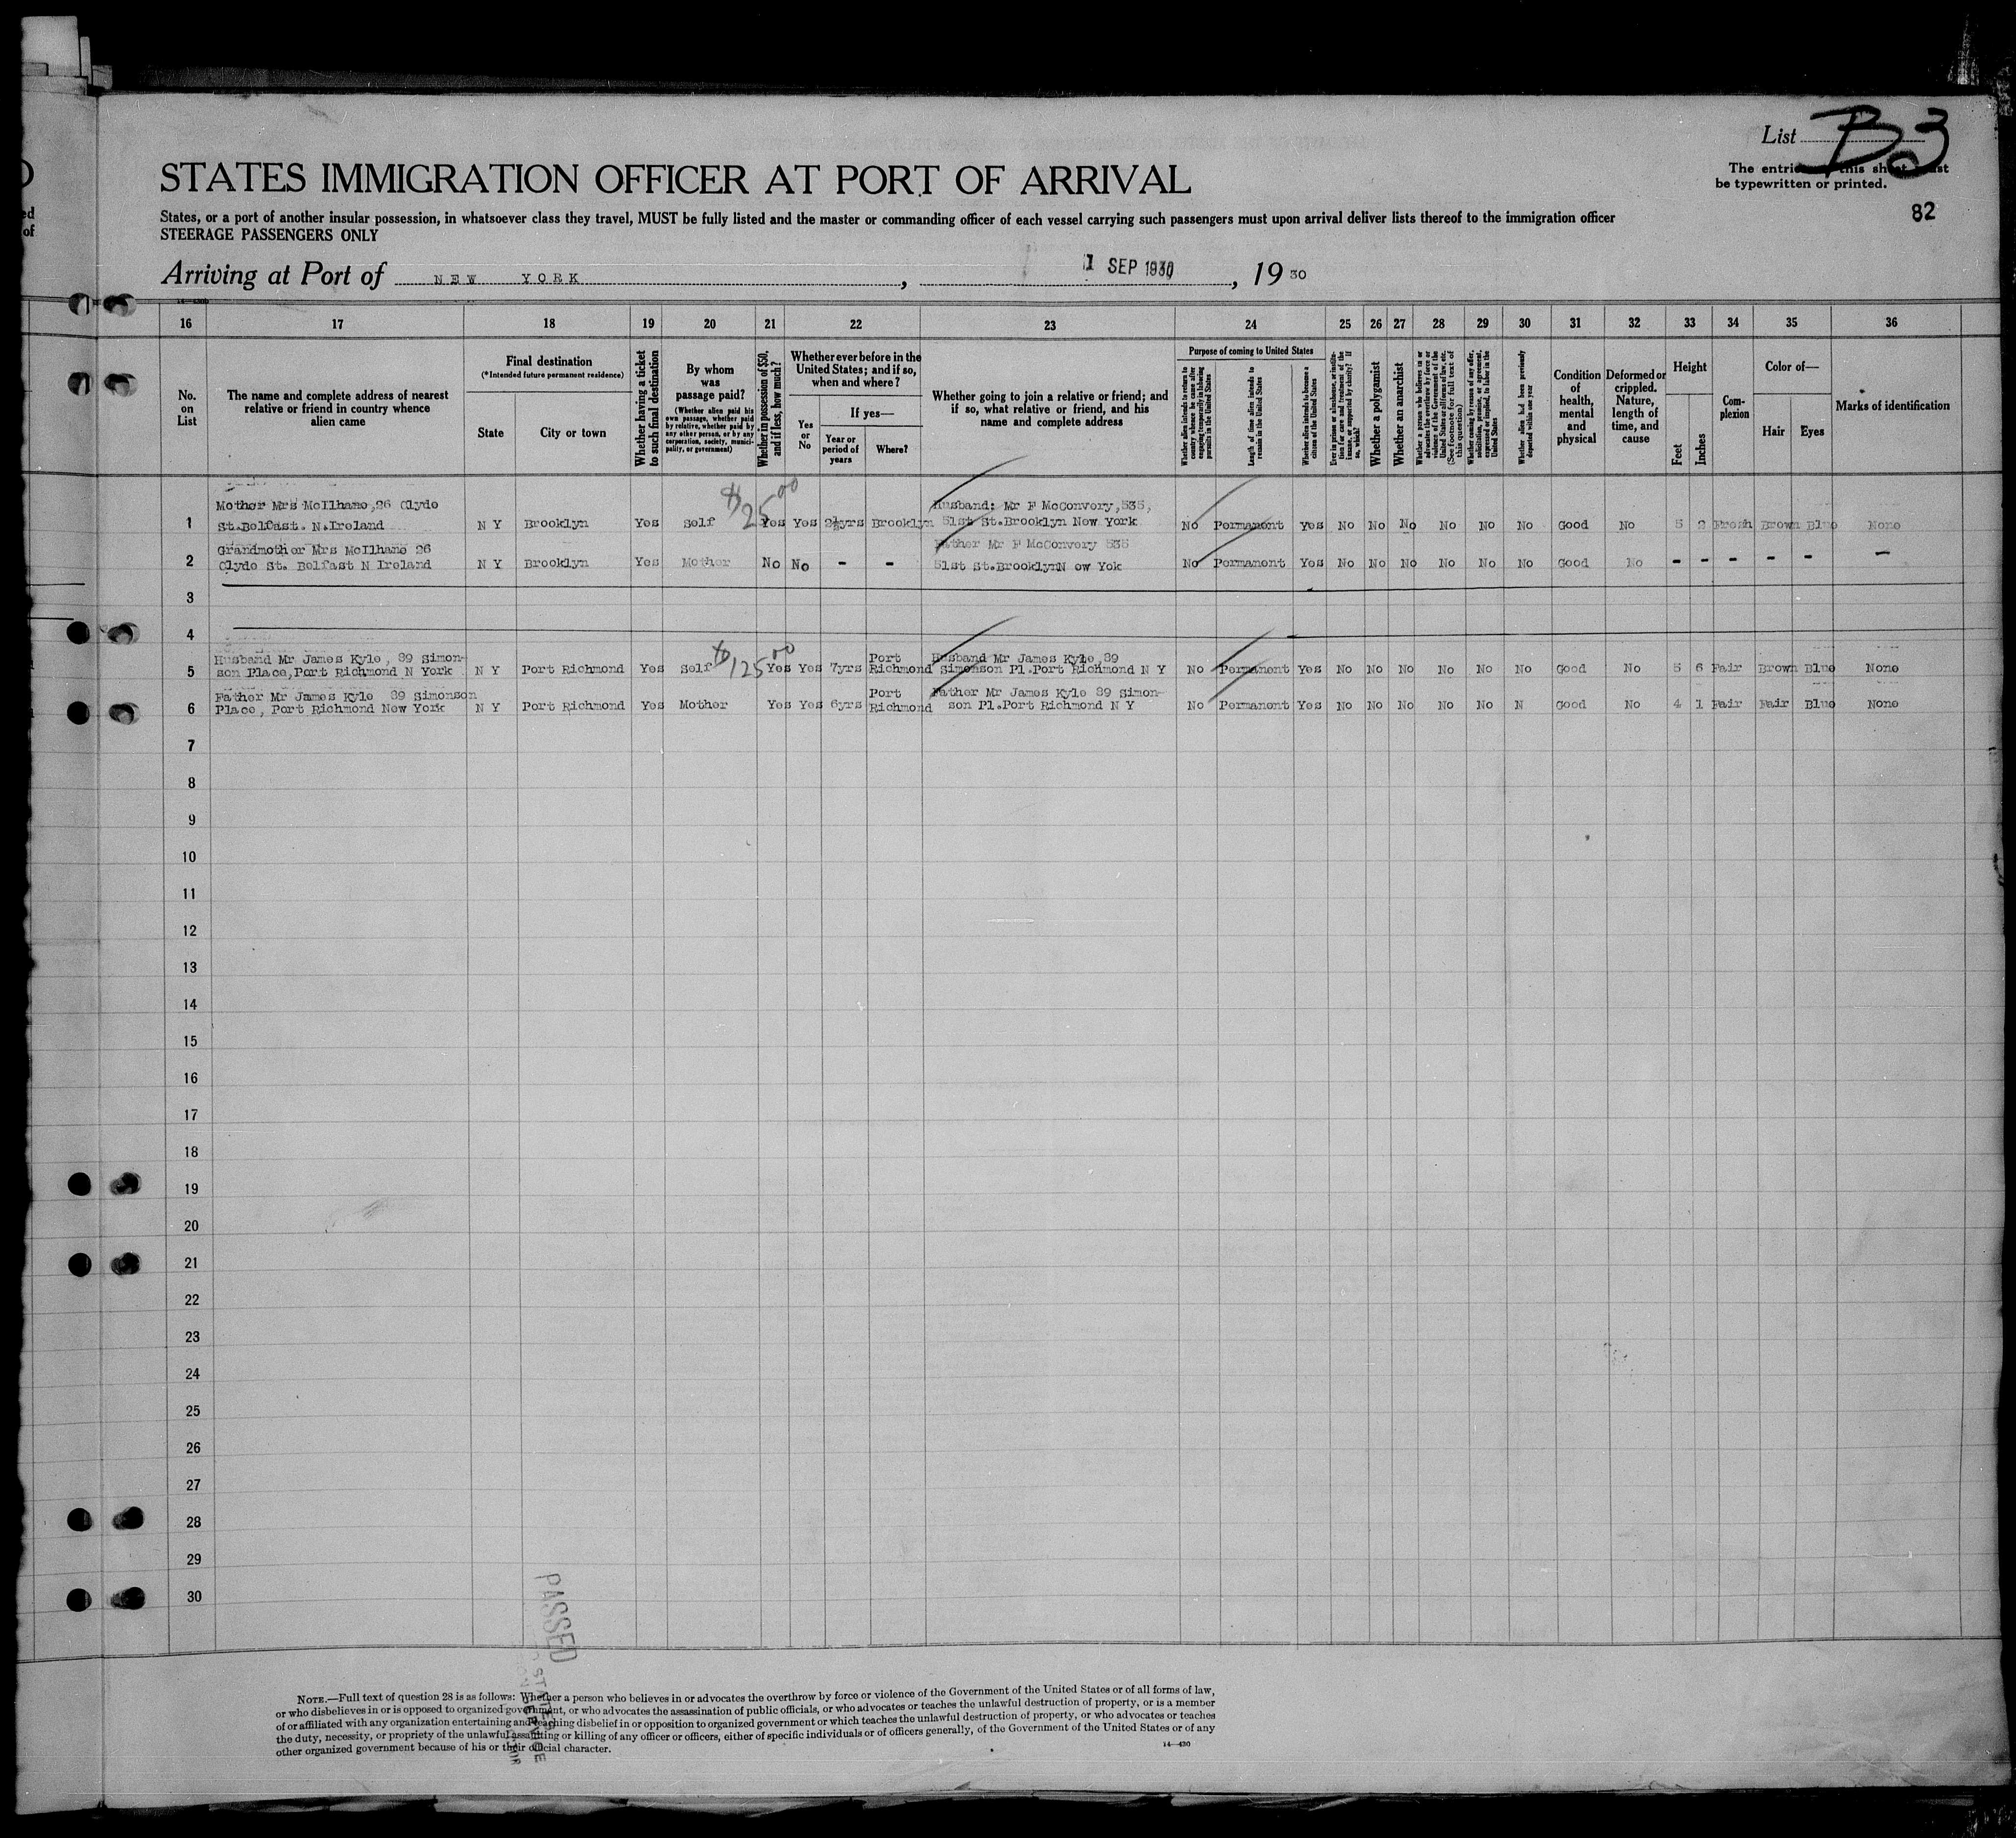 List B 3
The entrie this sh st
be typewritten or printed.
82
STATES IMMIGRATION OFFICER AT PORT OF ARRIVAL
States, or a port of another insular possession, in whatsoever class they travel, MUST be fully listed and the master or commanding officer of each vessel carrying such passengers must upon arrival deliver lists thereof to the immigration officer
STEERAGE PASSENGERS ONLY
Arriving at Port of NEW YORK, 1 SEP 1930, 19 30
16 17 18 19 20 21 22 23 24 25 26 27 28 29 30 31 32 33 34 35 36
No. on List
The name and complete address of nearest relative or friend in country whence alien came
Final destination
(*Intended future permanent residence)
State
City or town
Whether having a ticket to such final destination
By whom was passage paid?
(Whether alien paid his own passage, whether paid by relative, whether paid by any other person, or by any corporation, society, municipality, or government)
Whether in possession of $50, and if less, how much?
Whether ever before in the United States; and if so, when and where?
Yes or No
If yes—
Year or period of years
Where?
Whether going to join a relative or friend; and if so, what relative or friend, and his name and complete address
Purpose of coming to United States
Whether alien intends to return to country whence he came after engaging temporarily in laboring pursuits in the United States
Length of time alien intends to remain in the United States
Whether alien intends to become a citizen of the United States
Ever in prison or almshouse, or institution for care and treatment of the insane, or supported by charity? If so, which?
Whether a polygamist
Whether an anarchist
Whether a person who believes in or advocates the overthrow by force or violence of the Government of the United States or all forms of law, etc. (See footnote for full text of this question)
Whether coming by reason of any offer, solicitation, promise, or agreement, expressed or implied, to labor in the United States
Whether alien had been previously deported within one year
Condition of health, mental and physical
Deformed or crippled. Nature, length of time, and cause
Height
Feet
Inches
Complexion
Color of—
Hair
Eyes
Marks of identification
$25 00
Mother Mrs McIlhame,26 Clyde Husband: Mr F McConvery,535,
1 St.Belfast. N.Ireland N Y Brooklyn Yes Self Yes Yes 2½yrs Brooklyn 51st St.Brooklyn New York No Permanent Yes No No No No No No Good No 5 2 Fresh Brown Blue None
Grandmother Mrs McIlhame 26 Father Mr F McConvery 535
2 Clyde St. Belfast N Ireland N Y Brooklyn Yes Mother No No - - 51st St.BrooklynN ow Yok No Permanent Yes No No No No No No Good No - - - - - -
3
4
$125 00
Husband Mr James Kyle, 89 Simon- Port Husband Mr James Kyle 89
5 son Place,Port Richmond N York N Y Port Richmond Yes Self Yes Yes 7yrs Richmond Simonson Pl.Port Richmond N Y No Permanent Yes No No No No No No Good No 5 6 Fair Brown Blue None
Father Mr James Kyle 89 Simonson Port Father Mr James Kyle 89 Simon-
6 Place, Port Richmond New York N Y Port Richmond Yes Mother Yes Yes 6yrs Richmond son Pl.Port Richmond N Y No Permanent Yes No No No No No N Good No 4 1 Fair Fair Blue None
7
8
9
10
11
12
13
14
15
16
17
18
19
20
21
22
23
24
25
26
27
28
29
30
PASSED
NOTE.—Full text of question 28 is as follows: Whether a person who believes in or advocates the overthrow by force or violence of the Government of the United States or of all forms of law,
or who disbelieves in or is opposed to organized government, or who advocates the assassination of public officials, or who advocates or teaches the unlawful destruction of property, or is a member
of or affiliated with any organization entertaining and teaching disbelief in or opposition to organized government or which teaches the unlawful destruction of property, or who advocates or teaches
the duty, necessity, or propriety of the unlawful assaulting or killing of any officer or officers, either of specific individuals or of officers generally, of the Government of the United States or of any
other organized government because of his or their official character.
14—430